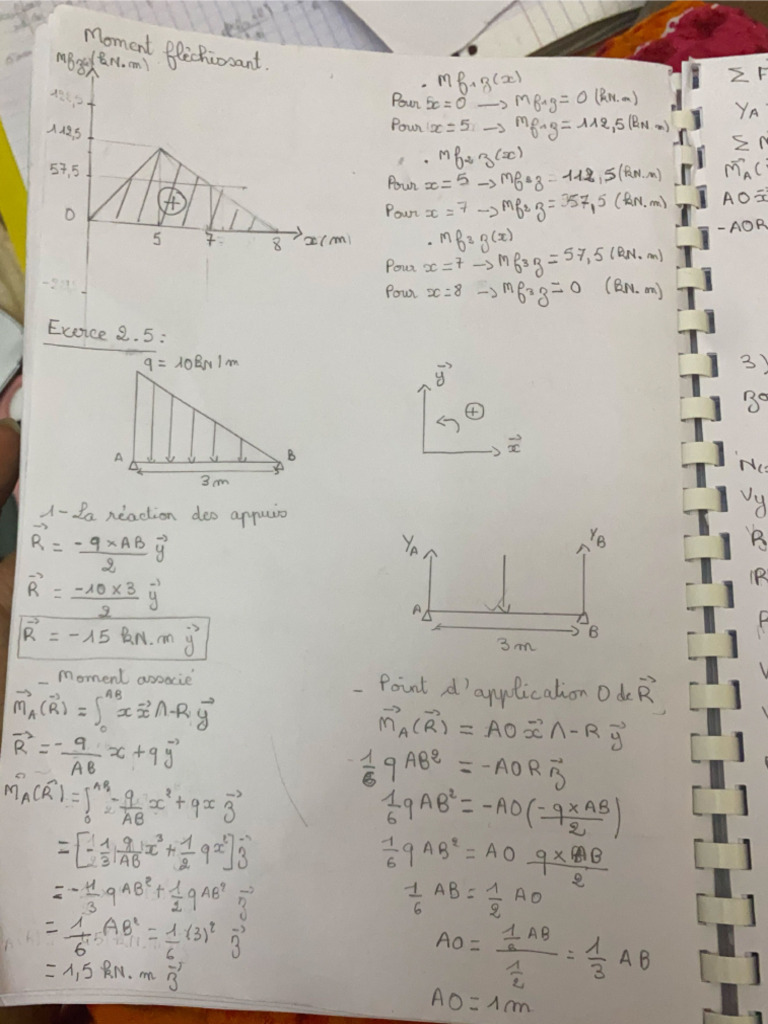 Moment fléchissant.
Mfz (kN.m)
112,5
57,5
0
5
7
8
x(m)
. Mf1z(x)
Pour x=0 → Mf1z = 0 (kN.m)
Pour x=5 → Mf1z = 112,5(kN.m)
. Mf2z(x)
Pour x=5 → Mf2z = 112,5(kN.m)
Pour x=7 → Mf2z = 357,5 (kN.m)
. Mf3z(x)
Pour x=7 → Mf3z = 57,5(kN.m)
Pour x=8 → Mf3z = 0 (kN.m)
Exerce 2.5:
q = 10kN/m
A
B
3m
y⃗
+
x⃗
1-La réaction des appuis
R⃗ = -q×AB/2 y⃗
R⃗ = -10×3/2 y⃗
R⃗ = -15 kN.m y⃗
YA
YB
A
B
3m
- Moment associé
M⃗A(R⃗) = ∫0^AB x x⃗ ∧ -R y⃗
R⃗ = -q/AB x + q y⃗
M⃗A(R⃗) = ∫0^AB -q/AB x² + qx z⃗
= [-1/3 q/AB x³ + 1/2 qx²] z⃗
= -1/3 qAB² + 1/2 qAB² z⃗
= 1/6 AB² = 1/6 (3)² z⃗
= 1,5 kN.m z⃗
- Point d'application O de R⃗
M⃗A(R⃗) = AO x⃗ ∧ -R y⃗
1/6 qAB² = -AOR z⃗
1/6 qAB² = -AO(-q×AB/2)
1/6 qAB² = AO q×AB/2
1/6 AB = 1/2 AO
AO = 1/6 AB / 1/2 = 1/3 AB
AO = 1m
Σ F
YA
Σ M
M⃗A(
AO x⃗
-AOR
3)
Vy